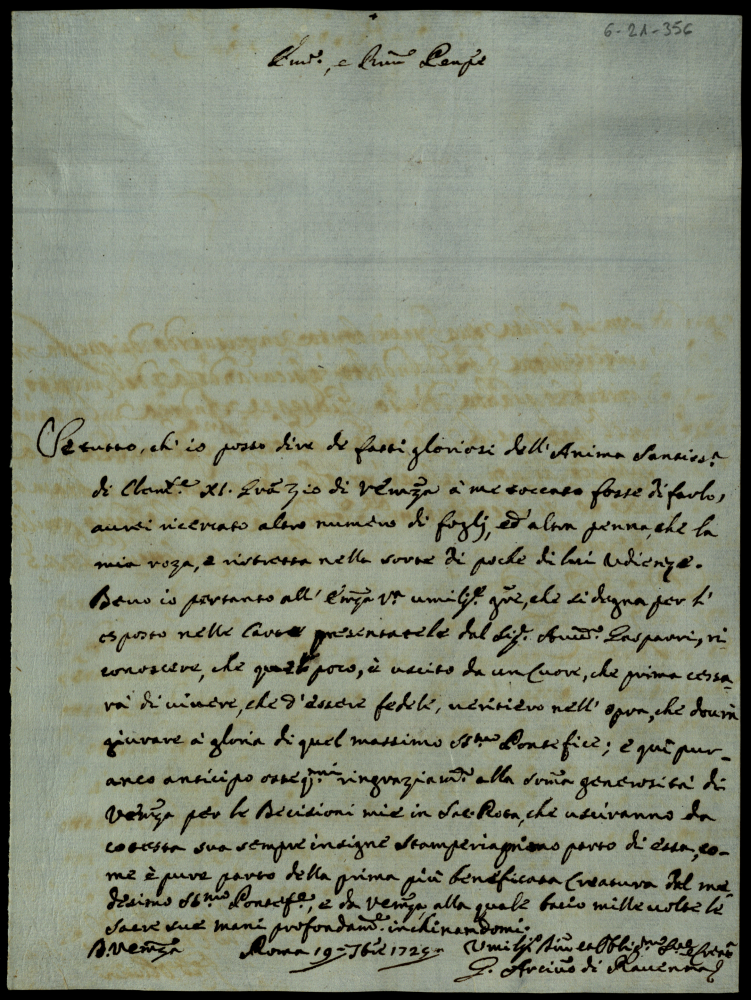 6-21-356
Em.o, e Rmo Penpe
Se tutto, ch' io posso dire de fatti gloriosi dell' Anima Santiss.a
di Clem.e XI. gran Zio di V. Emza à me toccato fosse di farlo,
aurei ricercato altro numero di foglj, ed' altra penna, che la
mia roza, e ristretta nella sorte di poche di lui Udienze.
Devo io pertanto all' Emza Va umiliss.e gre, che si degna per l'
esposto nelle Carte presentatele dal Sig. Avv.o Gasparri, ri
conoscere, che questo poco, è uscito da un Cuore, che prima cessa-
rà di vivere, che d'essere fedele, veritiero nell' opra, che dourà
giurare à gloria di quel massimo Stmo Pontefice; e quì pur-
anco anticipo osseqmi ringraziam.ti alla somma generosità di
V. Emza per le Decisioni mie in Sac. Rota, che usciranno da
cotesta sua sempre insigne Stamperia primo parto di essa, co-
me è pure parto della prima più beneficata Creatura del me
desimo Stmo Pontef.e, e da V. Emza, alla quale bacio mille volte le
sacre sue mani profondam.e inchinandomi.
D. V. Emza Roma 19 7bre 1725
Umiliss. Diu. ed Obblig.mo Ser.
G. Arciv.o di Ravenna